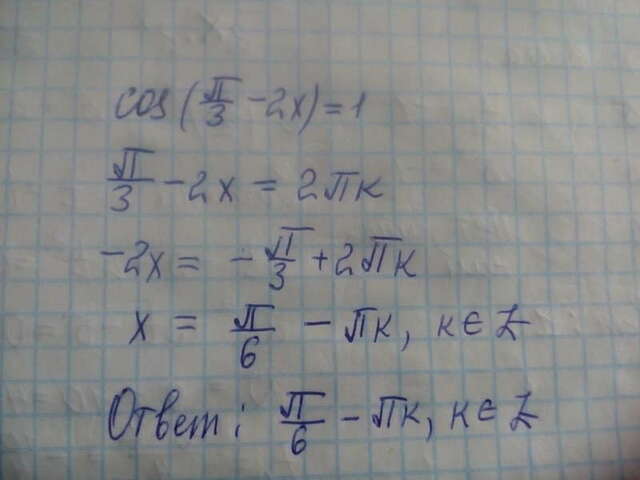 cos(π/3 - 2x) = 1
π/3 - 2x = 2πк
-2x = -π/3 + 2πк
x = π/6 - πк, к ∈ Z
Ответ: π/6 - πк, к ∈ Z